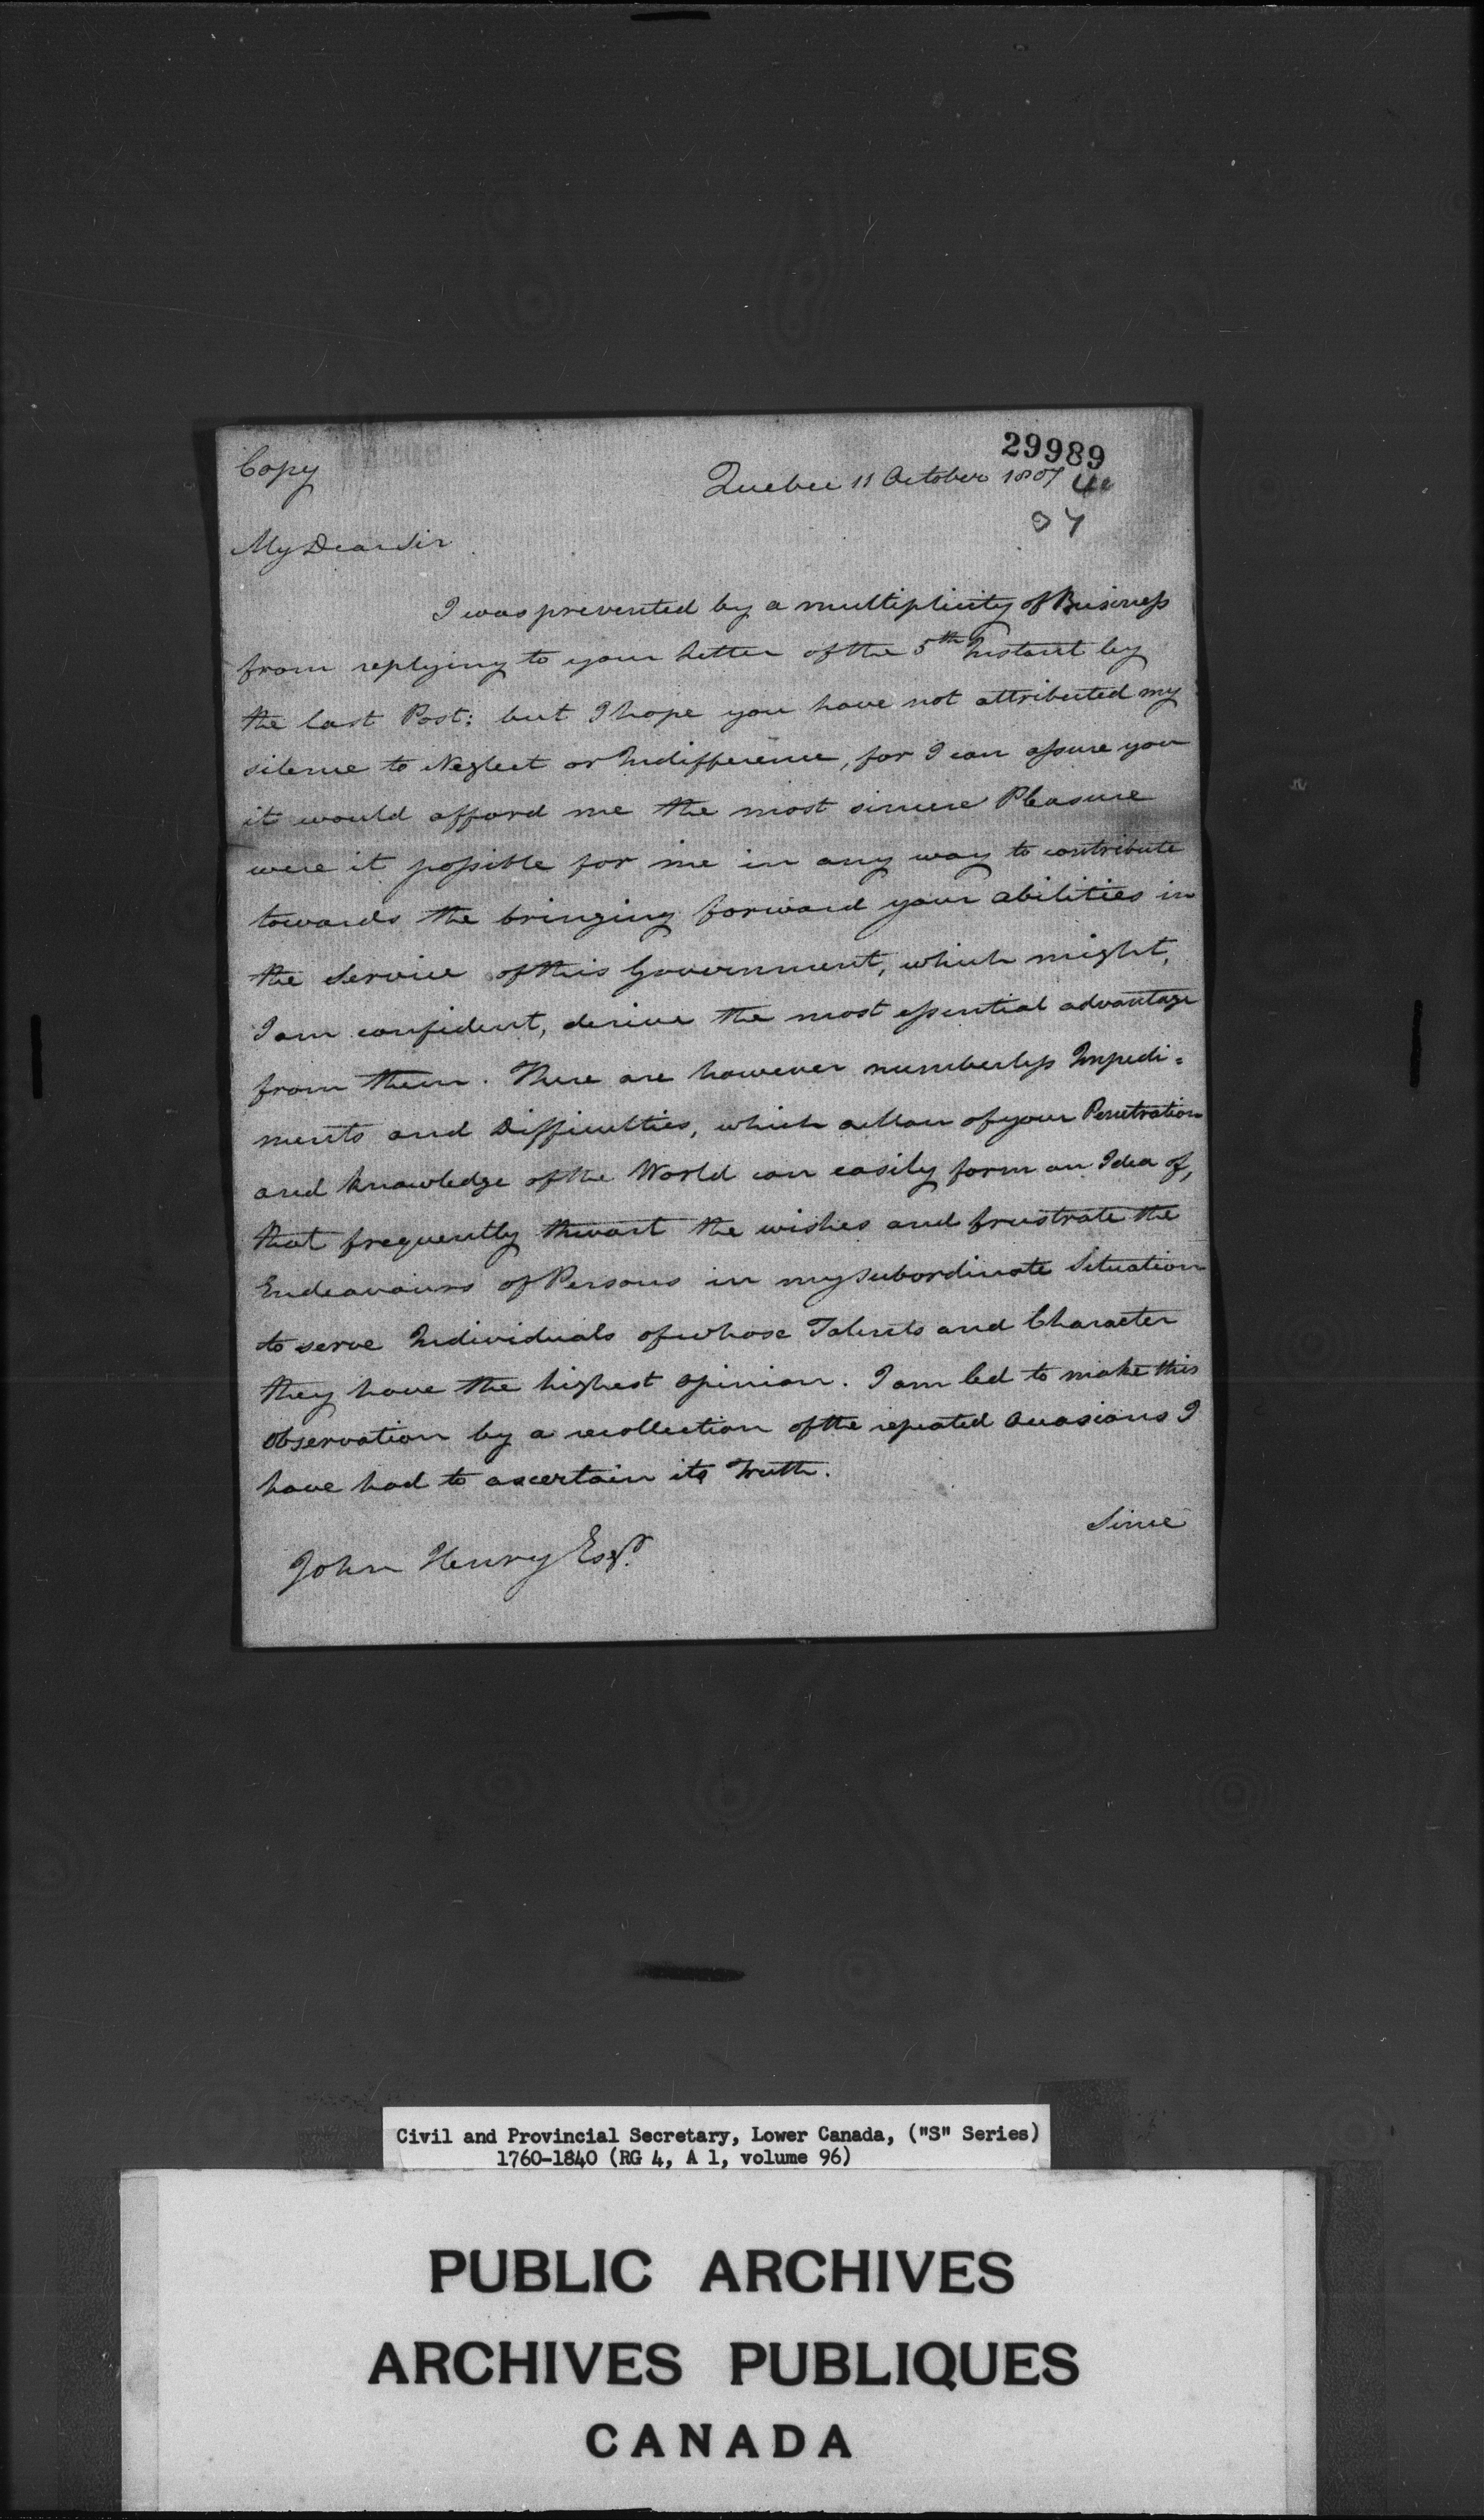 29989
Copy
Quebec 11 October 1807
07
My Dear Sir
I was prevented by a multiplicity of Business
from replying to your Letter of the 5th Instant by
the last Post: but I hope you have not attributed my
silence to Neglect or Indifference, for I can assure you
it would afford me the most sincere Pleasure
were it possible for me in any way to contribute
towards the bringing forward your abilities in
the Service of this Government, which might,
I am confident, derive the most essential advantage
from them. There are however numberless Impedi=
ments and Difficulties, which a Man of your Penetration
and knowledge of the World can easily form an Idea of,
that frequently thwart the wishes and frustrate the
Endeavours of Persons in my subordinate Situation
to serve Individuals of whose Talents and Character
they have the highest opinion. I am led to make this
observation by a recollection of the repeated Occasions I
have had to ascertain its Truth.
Since
John Henry Esqr.
Civil and Provincial Secretary, Lower Canada, ("S" Series)
1760-1840 (RG 4, A 1, volume 96)
PUBLIC ARCHIVES
ARCHIVES PUBLIQUES
CANADA